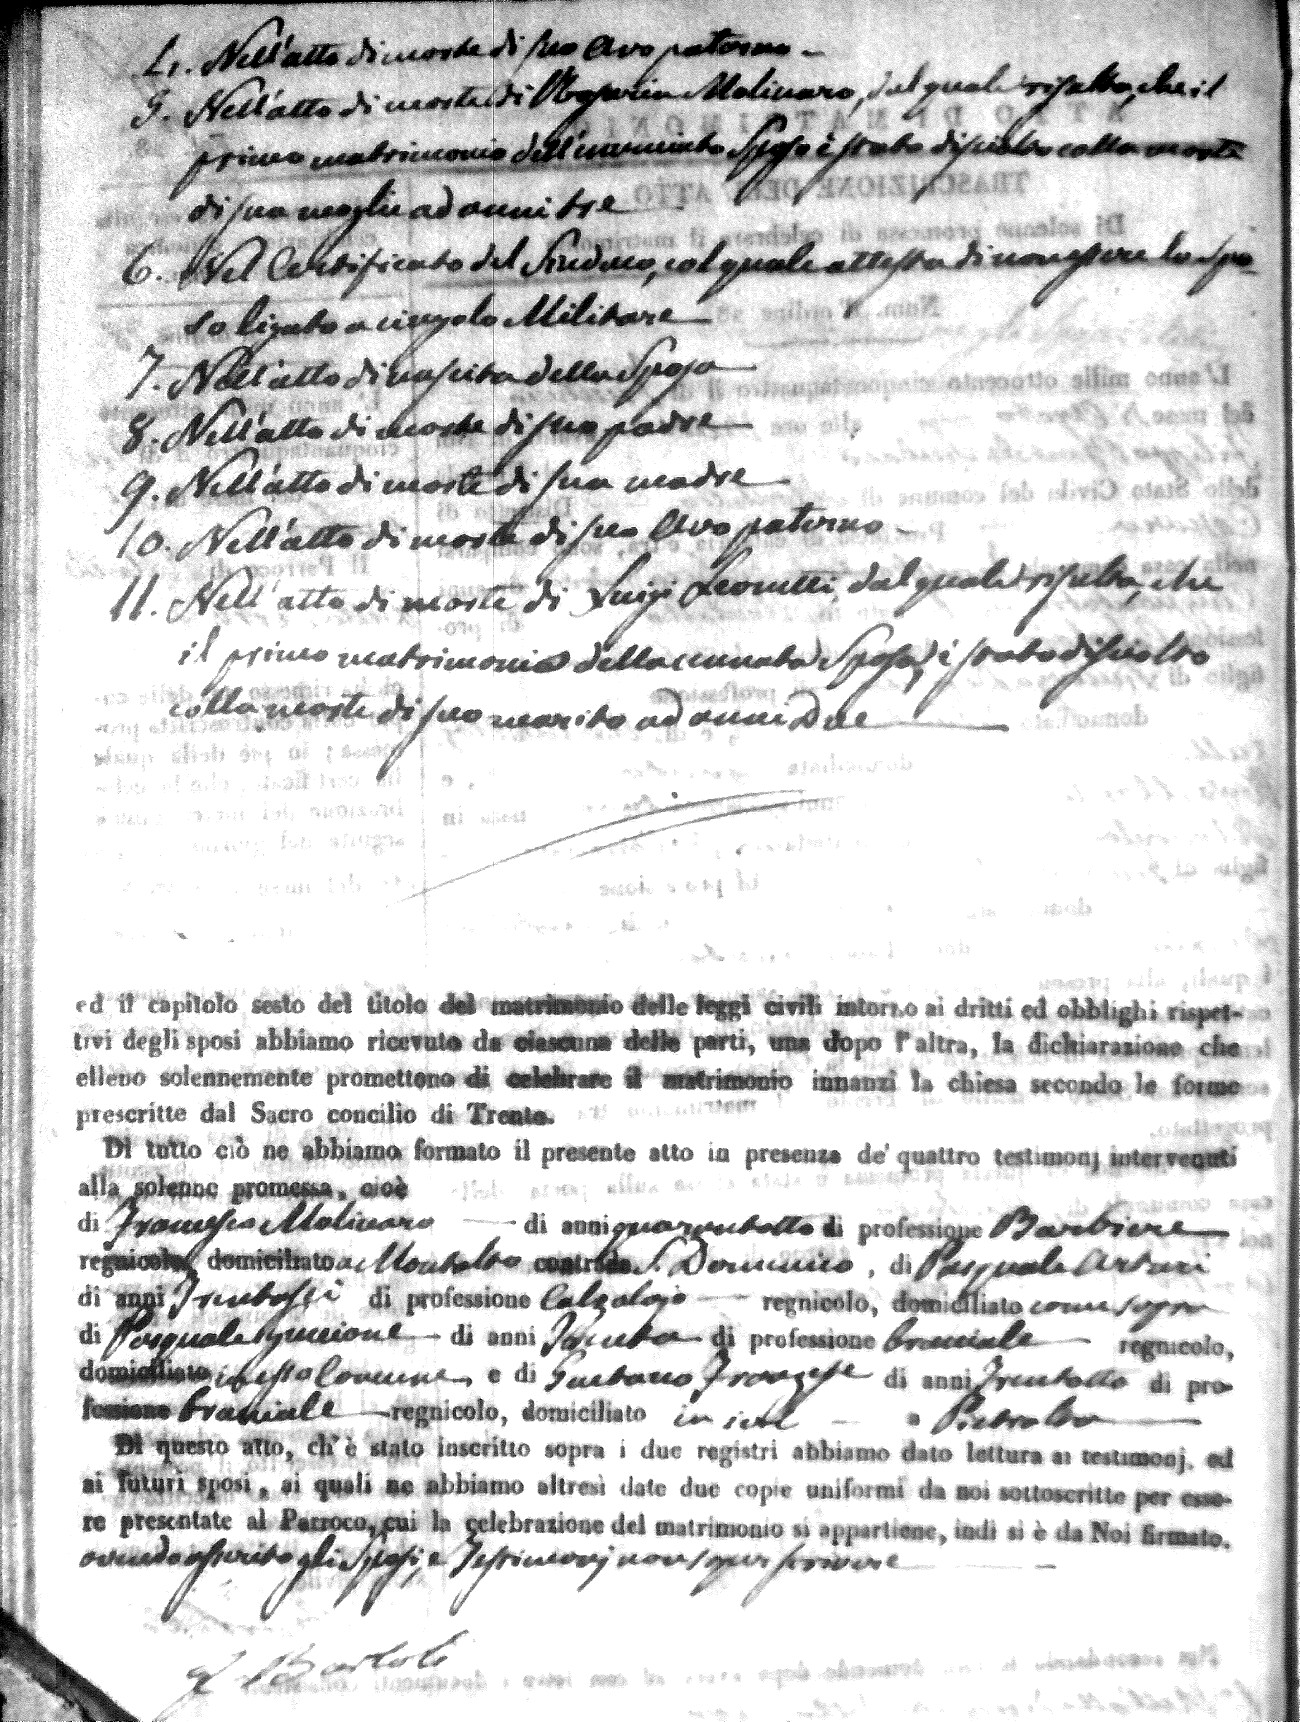 4. Nell'atto di morte di suo Avo paterno
5. Nell'atto di morte di Molinaro, dal quale risulta, che il
primo matrimonio dell'innunciato Sposo è stato disciolto colla morte
di sua moglie ad anni tre
6. Nel Certificato del Sindaco, col quale attesta di non essere lo Spo-
so ligato a cingolo Militare
7. Nell'atto di nascita della Sposa
8. Nell'atto di morte di suo padre
9. Nell'atto di morte di sua madre
10. Nell'atto di morte di suo Avo paterno
11. Nell'atto di morte di Luigi Leonetti, dal quale risulta, che
il primo matrimonio della Sposa, è stato disciolto
colla morte di suo marito ad anni Due
ed il capitolo sesto del titolo del matrimonio delle leggi civili intorno ai dritti ed obblighi rispet-
tivi degli sposi abbiamo ricevuto da ciascuna delle parti, una dopo l'altra, la dichiarazione che
elleno solennemente promettono di celebrare il matrimonio innanzi la chiesa secondo le forme
prescritte dal Sacro concilio di Trento.
Di tutto ciò ne abbiamo formato il presente atto in presenza de' quattro testimonj intervenuti
alla solenne promessa, cioè
di Francesco Molinaro di anni quarantotto di professione Barbiere
regnicolo, domiciliato a Montalto contrada S. Domenico, di Pasquale Arturi
di anni Trentasei di professione Calzolajo regnicolo, domiciliato come sopra
di Pasquale di anni Trenta di professione braciale regnicolo,
domiciliato in esso Comune, e di Gaetano Franzese di anni Trentotto di pro-
fessione braciale regnicolo, domiciliato in a
Di questo atto, ch'è stato inscritto sopra i due registri abbiamo dato lettura ai testimonj, ed
ai futuri sposi, ai quali ne abbiamo altresì date due copie uniformi da noi sottoscritte per esse-
re presentate al Parroco, cui la celebrazione del matrimonio si appartiene, indi si è da Noi firmato.
avendo asserito gli Sposi, e Testimonj non saper scrivere